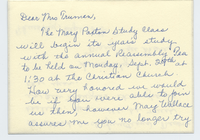 Dear Mrs Truman,
The Mary Paxton Study Class
will begin its years study
with the annual Reassembly Tea
to be held on Monday, Sept. 28th at
1:30 at the Christian Church
How very honored we would
be if you were able to join
us then, however Mary Wallace
assures me you no longer try